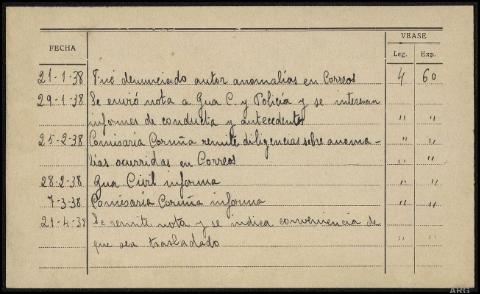 VEASE
FECHA Leg. Exp.
21-1-38 Fué denunciado autor anomalías en Correos 4 60
29-1-38 Se envió nota a Gua C. y Policía y se interesan " "
informes de conducta y antecedentes " "
25-2-38 Comisaría Coruña remite diligencias sobre anoma- " "
lías ocurridas en Correos " "
28-2-38 Gua Civil informa " "
7-3-38 Comisaría Coruña informa " "
21-4-38 Se remite nota y se indica conveniencia de
que sea trasladado " "
ARG